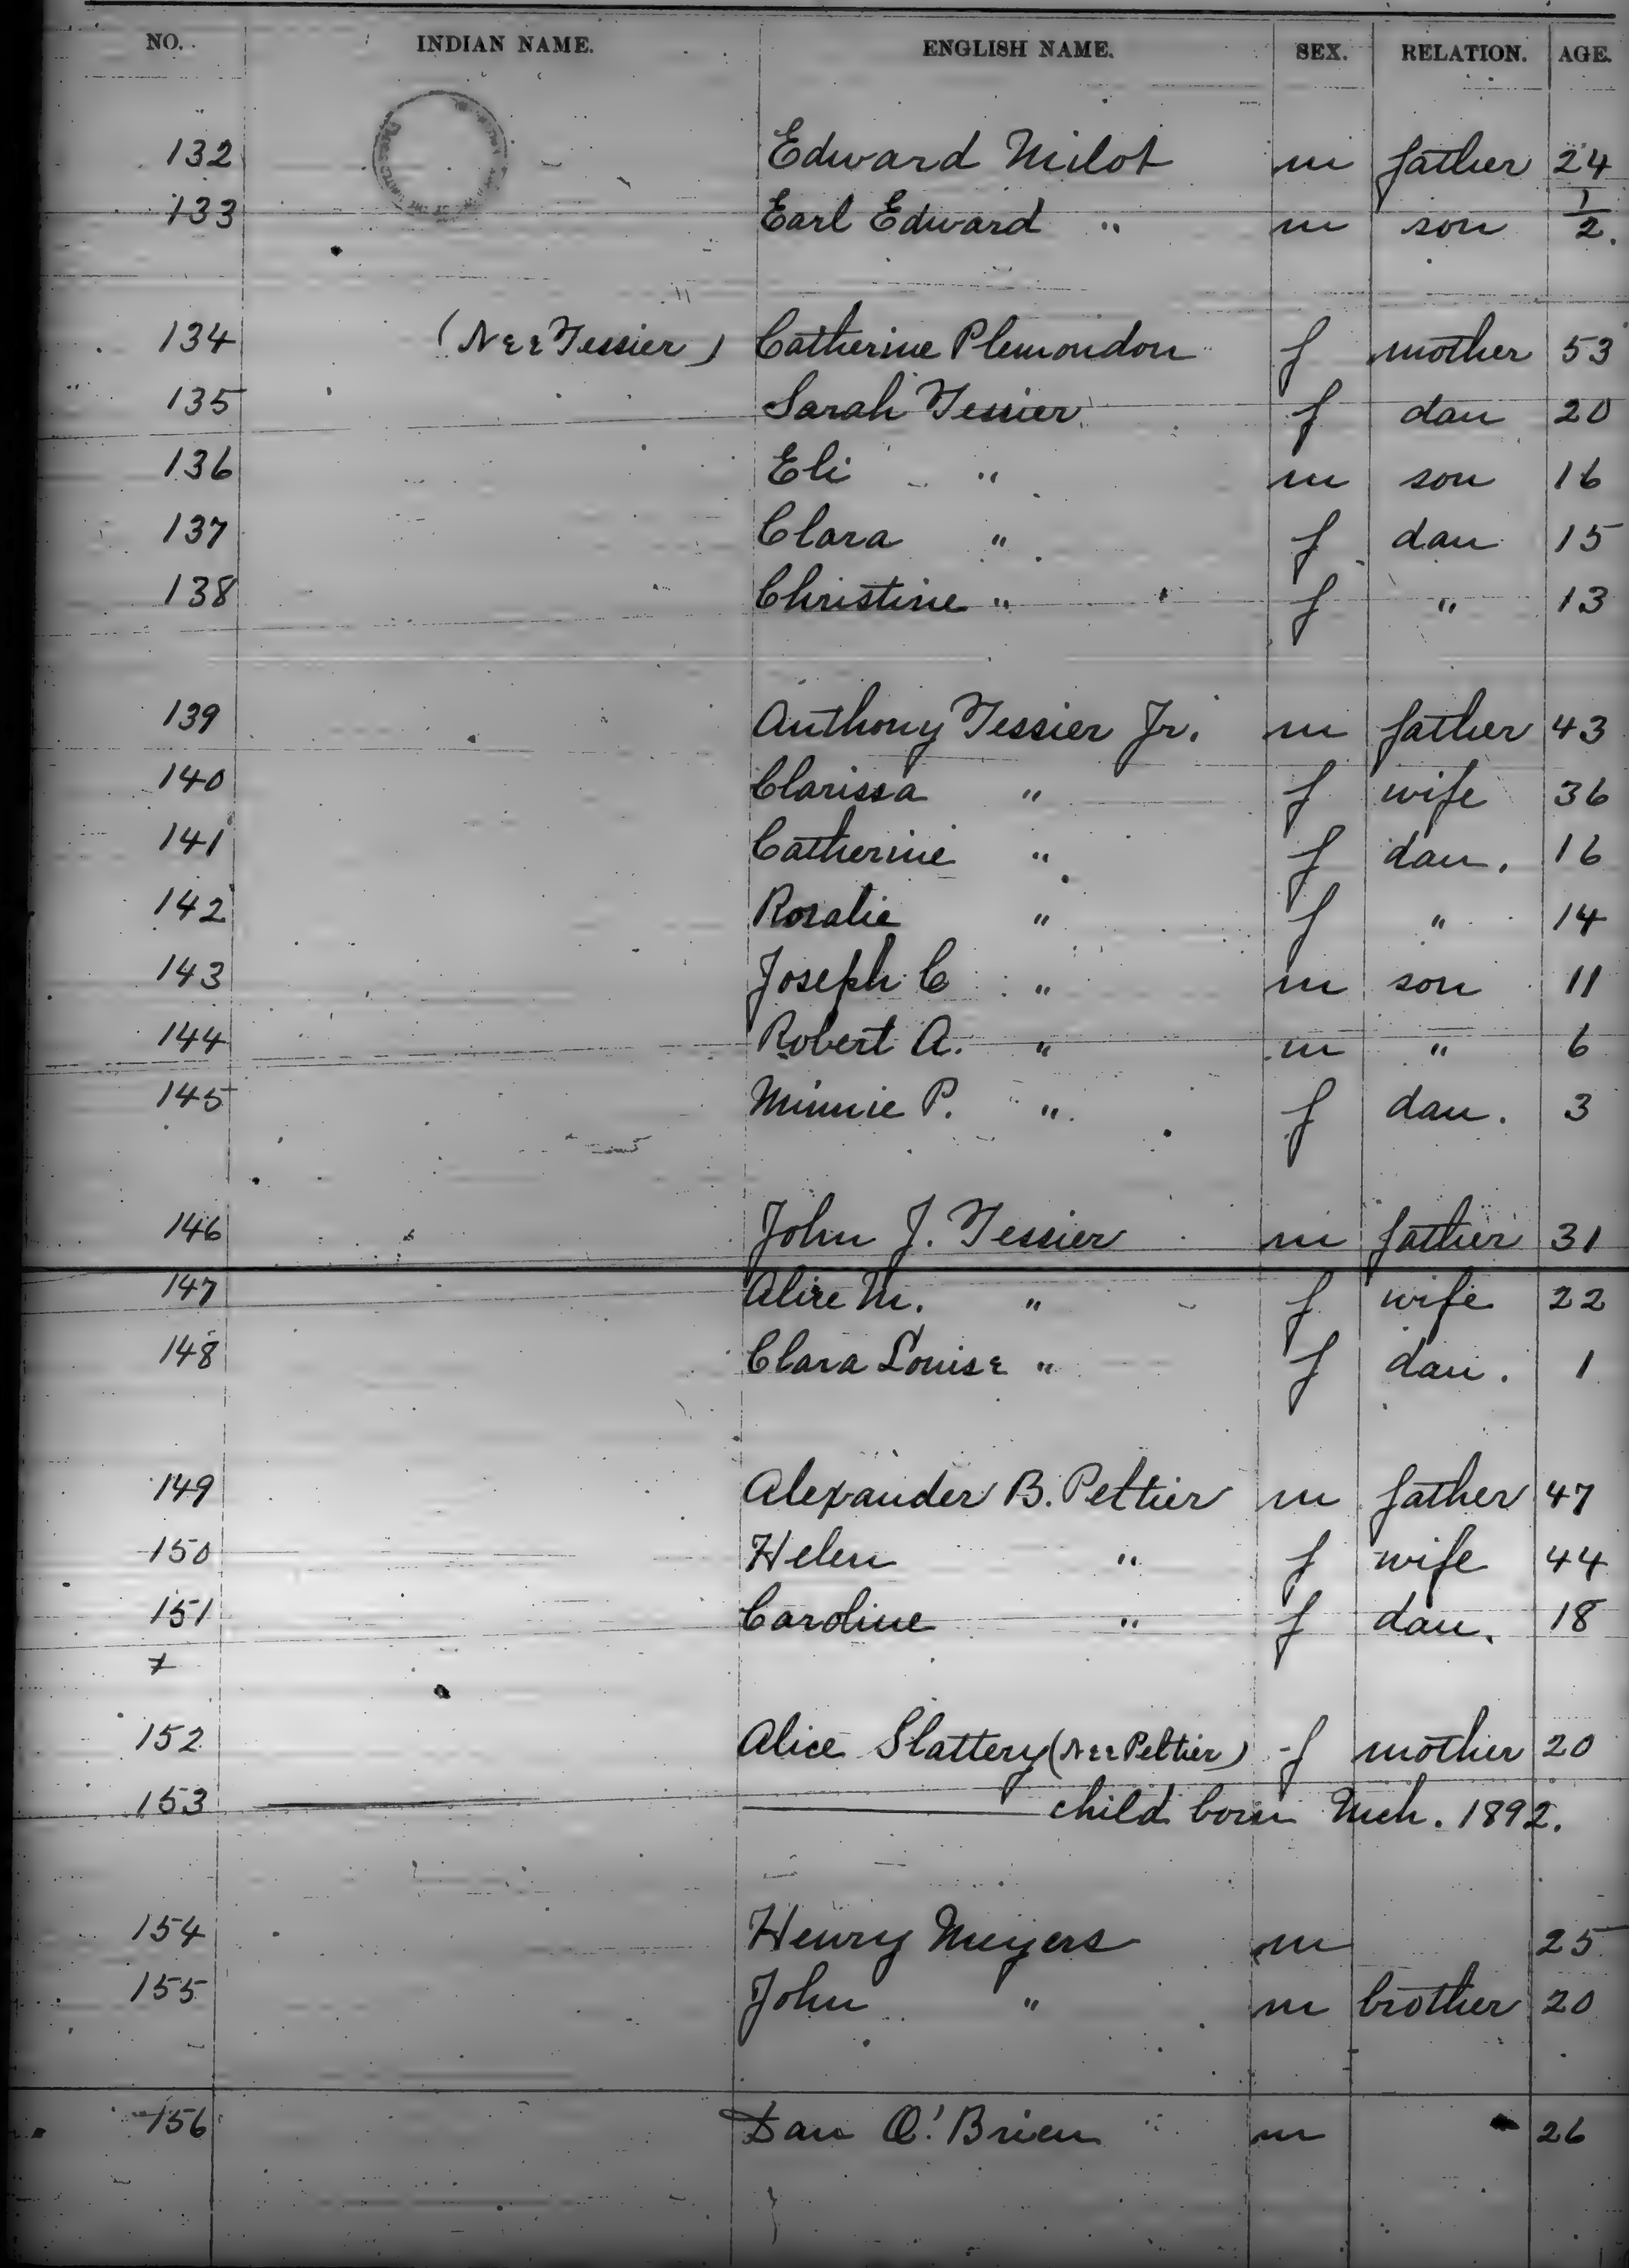 NO. INDIAN NAME. ENGLISH NAME. SEX. RELATION. AGE.
132 Edward Milot m father 24
133 Earl Edward " m son 1/2.
134 (Nee Tessier) Catherine Plemondon f mother 53
135 Sarah Tessier f dau 20
136 Eli " m son 16
137 Clara " f dau 15
138 Christine " f " 13
139 Anthony Tessier Jr. m father 43
140 Clarissa " f wife 36
141 Catherine " f dau. 16
142 Rosalie " f " 14
143 Joseph C " m son 11
144 Robert A. " m " 6
145 Minnie P. " f dau. 3
146 John J. Tessier m father 31
147 Alice M. " f wife 22
148 Clara Louise " f dau. 1
149 Alexander B. Peltier m father 47
150 Helen " f wife 44
151 Caroline " f dau. 18
x
152 Alice Slattery (Nee Peltier) f mother 20
153 child born Mch. 1892.
154 Henry Meyers m 25
155 John " m brother 20
156 Dan O'Brien m 26